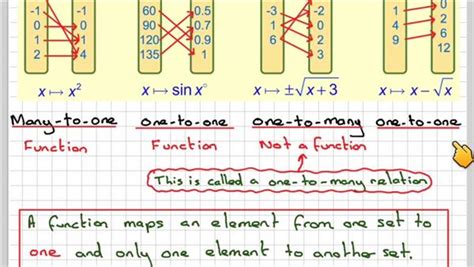 -1 -1 60 0.5 -3 1 0
0 0 90 0.7 1 -2 4 2
1 1 120 0.9 6 2 9 6
2 4 135 1 3 12
x ↦ x² x ↦ sin x° x ↦ ±√x + 3 x ↦ x - √x
Many-to-one one-to-one one-to-many one-to-one
Function Function Not a function
This is called a one-to-many relation
A function maps an element from one set to
one and only one element to another set.